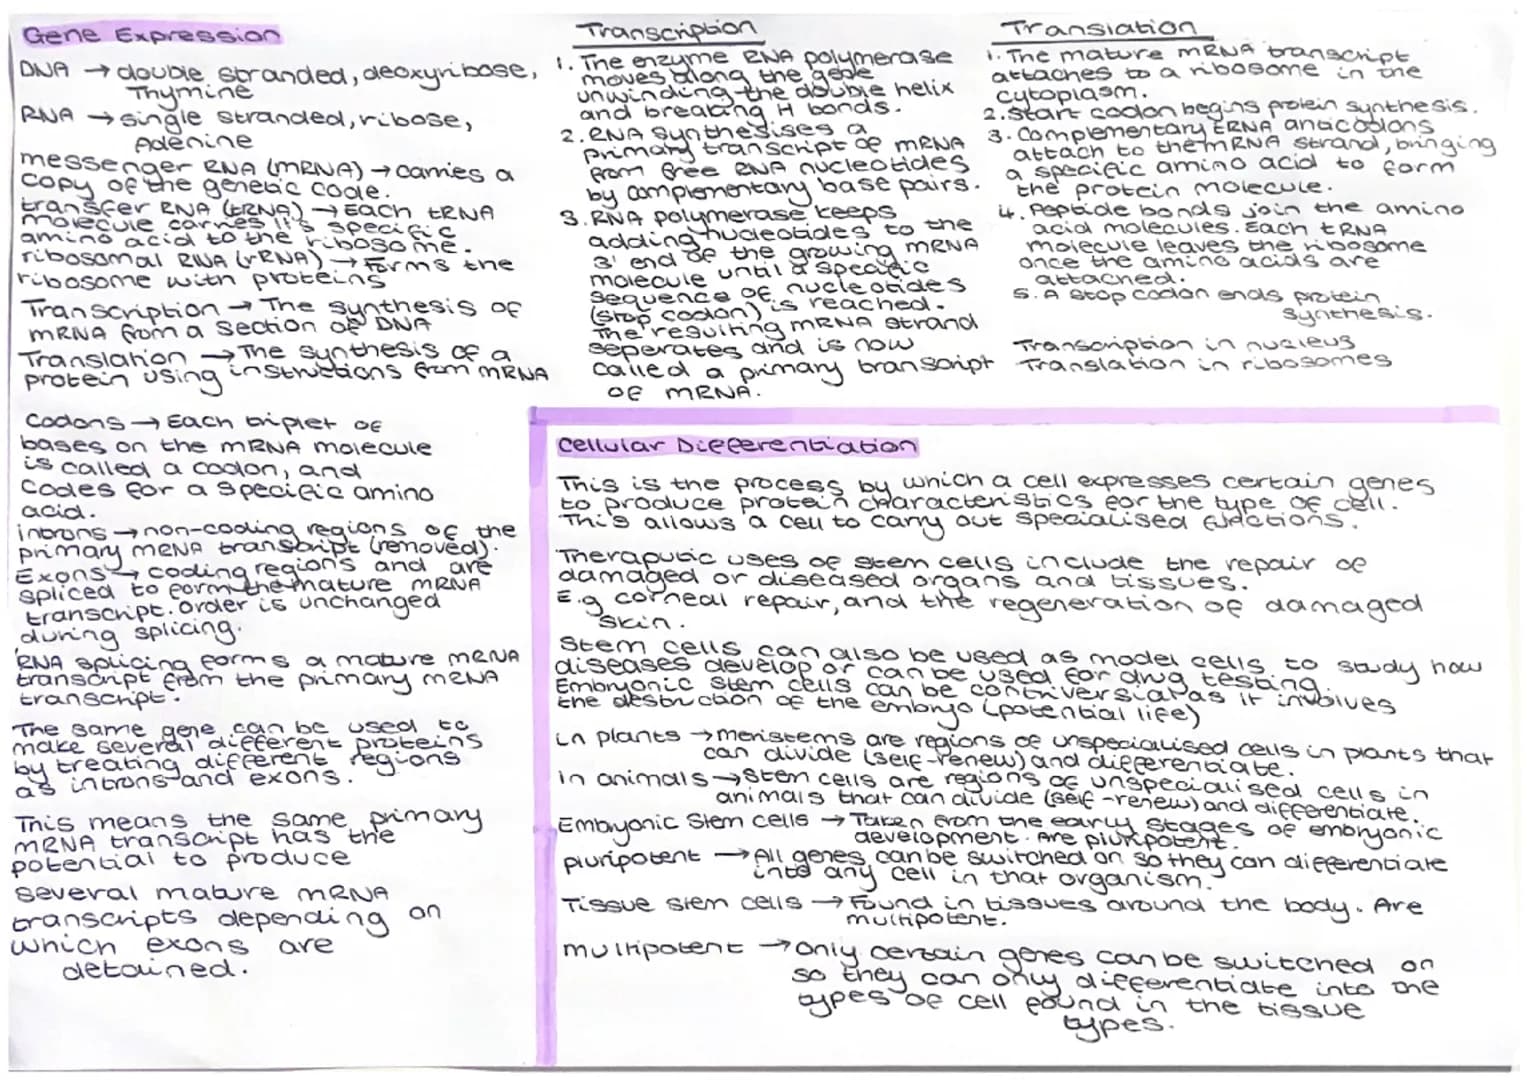 Gene Expression
DNA → double stranded, deoxyribose,
Thymine
RNA → single stranded, ribose,
Adenine
messenger RNA (mRNA) → carries a
copy of the genetic code.
transfer RNA (tRNA) → Each tRNA
molecule carries it's specific
amino acid to the ribosome.
ribosomal RNA (rRNA) → Forms the
ribosome with proteins
Transcription → The synthesis of
mRNA from a section of DNA
Translation → The synthesis of a
protein using instructions from mRNA
Codons → Each triplet of
bases on the mRNA molecule
is called a codon, and
codes for a specific amino
acid.
introns → non-coding regions of the
primary mRNA transcript (removed).
Exons → coding regions and are
spliced to form the mature mRNA
transcript. Order is unchanged
during splicing.
RNA splicing forms a mature mRNA
transcript from the primary mRNA
transcript.
The same gene can be used to
make several different proteins
by treating different regions
as introns and exons.
This means the same primary
mRNA transcript has the
potential to produce
several mature mRNA
transcripts depending on
which exons are
detained.
Transcription
1. The enzyme RNA polymerase
moves along the gene
unwinding the double helix
and breaking H bonds.
2. RNA synthesises a
primary transcript of mRNA
from free RNA nucleotides
by complementary base pairs.
3. RNA polymerase keeps
adding nucleotides to the
3' end of the growing mRNA
molecule until a specific
sequence of nucleotides
(stop codon) is reached.
The resulting mRNA strand
seperates and is now
called a primary transcript
of mRNA.
Translation
1. The mature mRNA transcript
attaches to a ribosome in the
cytoplasm.
2. Start codon begins protein synthesis.
3. Complementary tRNA anticodons
attach to the mRNA strand, bringing
a specific amino acid to form
the protein molecule.
4. Peptide bonds join the amino
acid molecules. Each tRNA
molecule leaves the ribosome
once the amino acids are
attached.
5. A stop codon ends protein
synthesis.
Transcription in nucleus
Translation in ribosomes
Cellular Differentiation
This is the process by which a cell expresses certain genes
to produce protein characteristics for the type of cell.
This allows a cell to carry out specialised functions.
Theraputic uses of stem cells include the repair of
damaged or diseased organs and tissues.
E.g corneal repair, and the regeneration of damaged
skin.
Stem cells can also be used as model cells to study how
diseases develop or can be used for drug testing.
Embryonic stem cells can be contriversial as it involves
the destruction of the embryo (potential life)
in plants → meristems are regions of unspecialised cells in plants that
can divide (self-renew) and differentiate.
in animals → Stem cells are regions of unspecialised cells in
animals that can divide (self-renew) and differentiate.
Embryonic Stem cells → Taken from the early stages of embryonic
development. Are pluripotent.
pluripotent → All genes can be switched on so they can differentiate
into any cell in that organism.
Tissue stem cells → Found in tissues around the body. Are
multipotent.
multipotent → Only certain genes can be switched on
so they can only differentiate into the
types of cell found in the tissue
types.